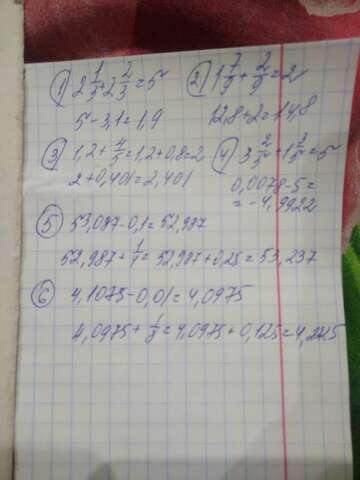 1) 2 1/3 + 2 2/3 = 5
5 - 3,1 = 1,9
2) 1 7/9 + 2/9 = 2
12,8 + 2 = 14,8
3) 1,2 + 4/5 = 1,2 + 0,8 = 2
2 + 0,401 = 2,401
4) 3 2/5 + 1 3/5 = 5
0,0078 - 5 =
= -4,9922
5) 53,087 - 0,1 = 52,987
52,987 + 1/4 = 52,987 + 0,25 = 53,237
6) 4,1075 - 0,01 = 4,0975
4,0975 + 1/8 = 4,0975 + 0,125 = 4,2225